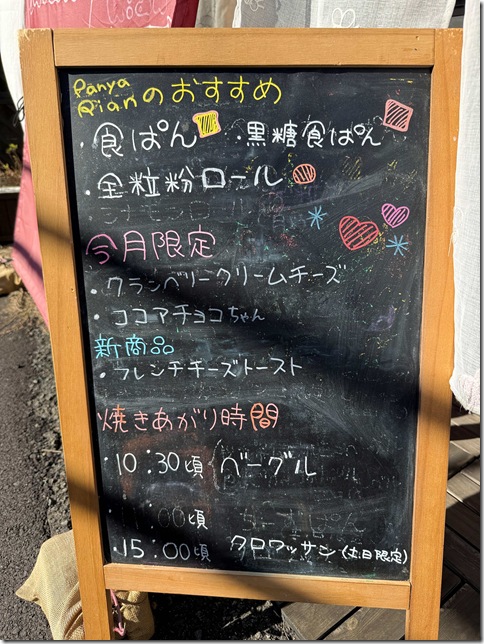 Panya
Qianのおすすめ
・食ぱん ・黒糖食ぱん
・全粒粉ロール
シナモンロール
今月限定
・クランベリークリームチーズ
・ココアチョコちゃん
新商品
・フレンチチーズトースト
焼きあがり時間
・10:30頃 ベーグル
:00頃
・15:00頃 クロワッサン(土日限定)